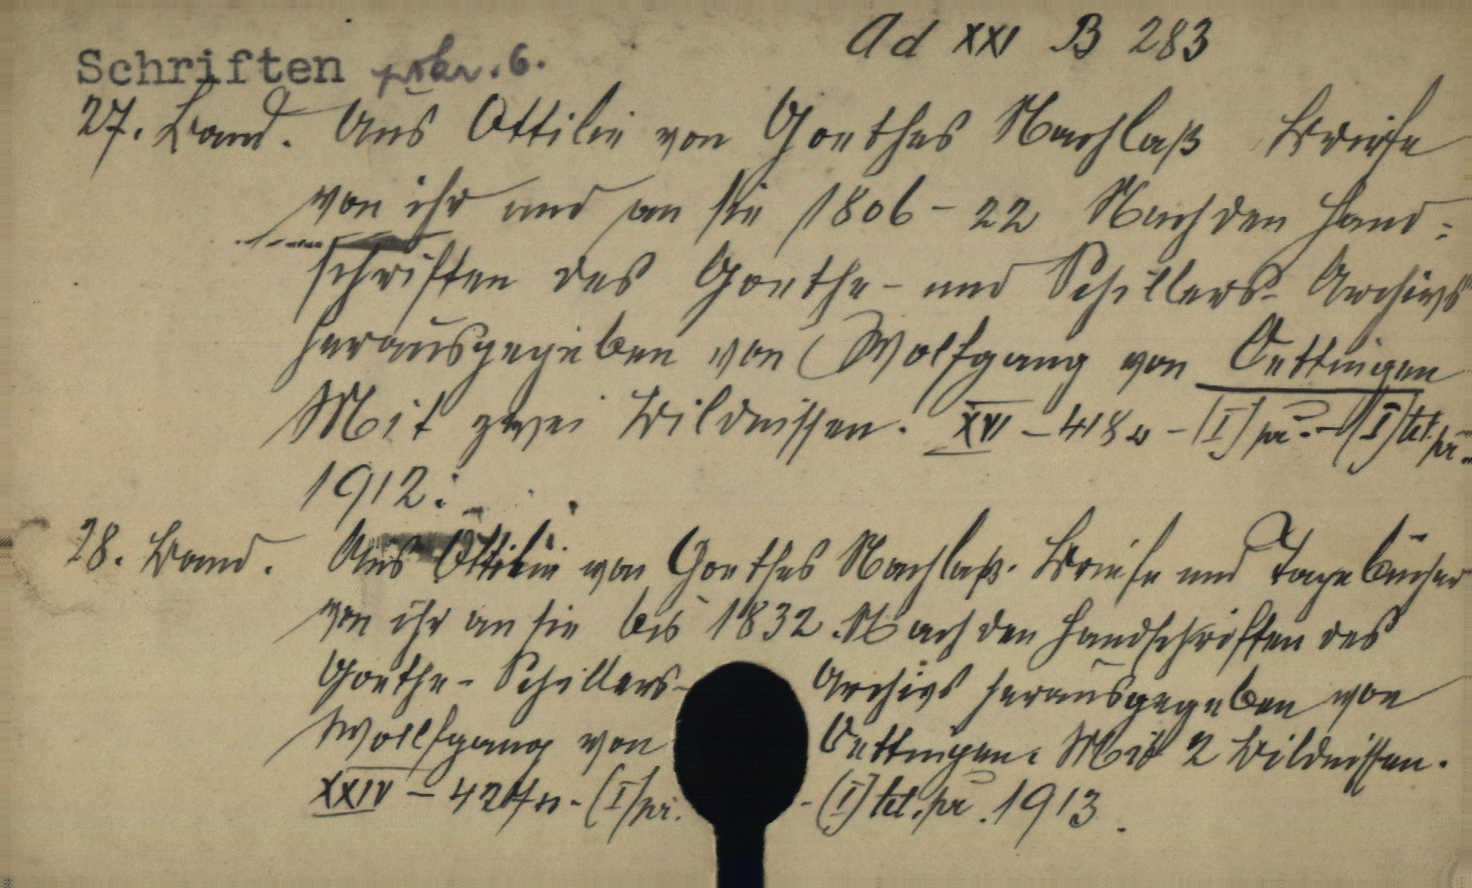 Ad XXI B 283
Schriften pokr. 6.
27. Band. Aus Ottilie von Goethes Nachlaß Briefe
von ihr und an sie 1806 - 22 Nach den Hand=
schriften des Goethe- und Schillers- Archivs
herausgegeben von Wolfgang von Oettingen
Mit zwei Bildnissen. XVI - 418 - [I] pr. - [I] tet. pr.
1912.
28. Band. Aus Ottilie von Goethes Nachlaß. Briefe und Tagebücher
von ihr an sie bis 1832. Nach den Handschriften des
Goethe- Schillers- Archivs herausgegeben von
Wolfgang von Oettingen. Mit 2 Bildnissen.
XXIV - - [I] pr. - [I] tet. pr. 1913.